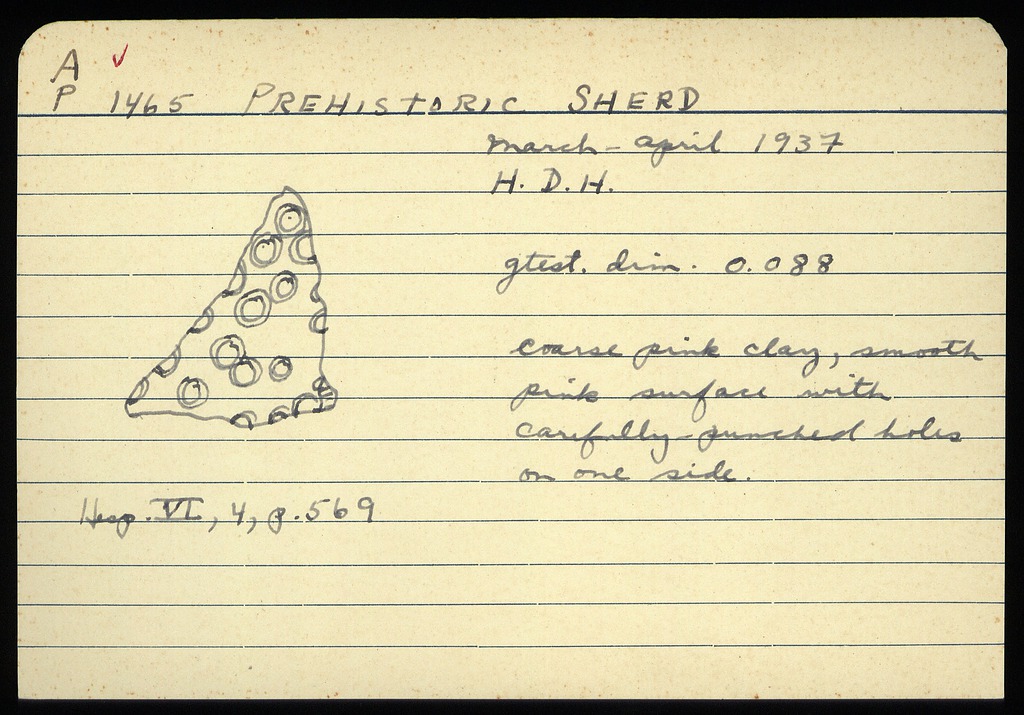 A ✓
P 1465 PREHISTORIC SHERD
March - April 1937
H. D. H.
gtest. dim. 0.088
coarse pink clay, smooth
pink surface with
carefully-punched holes
on one side.
Hesp. VI, 4, p. 569